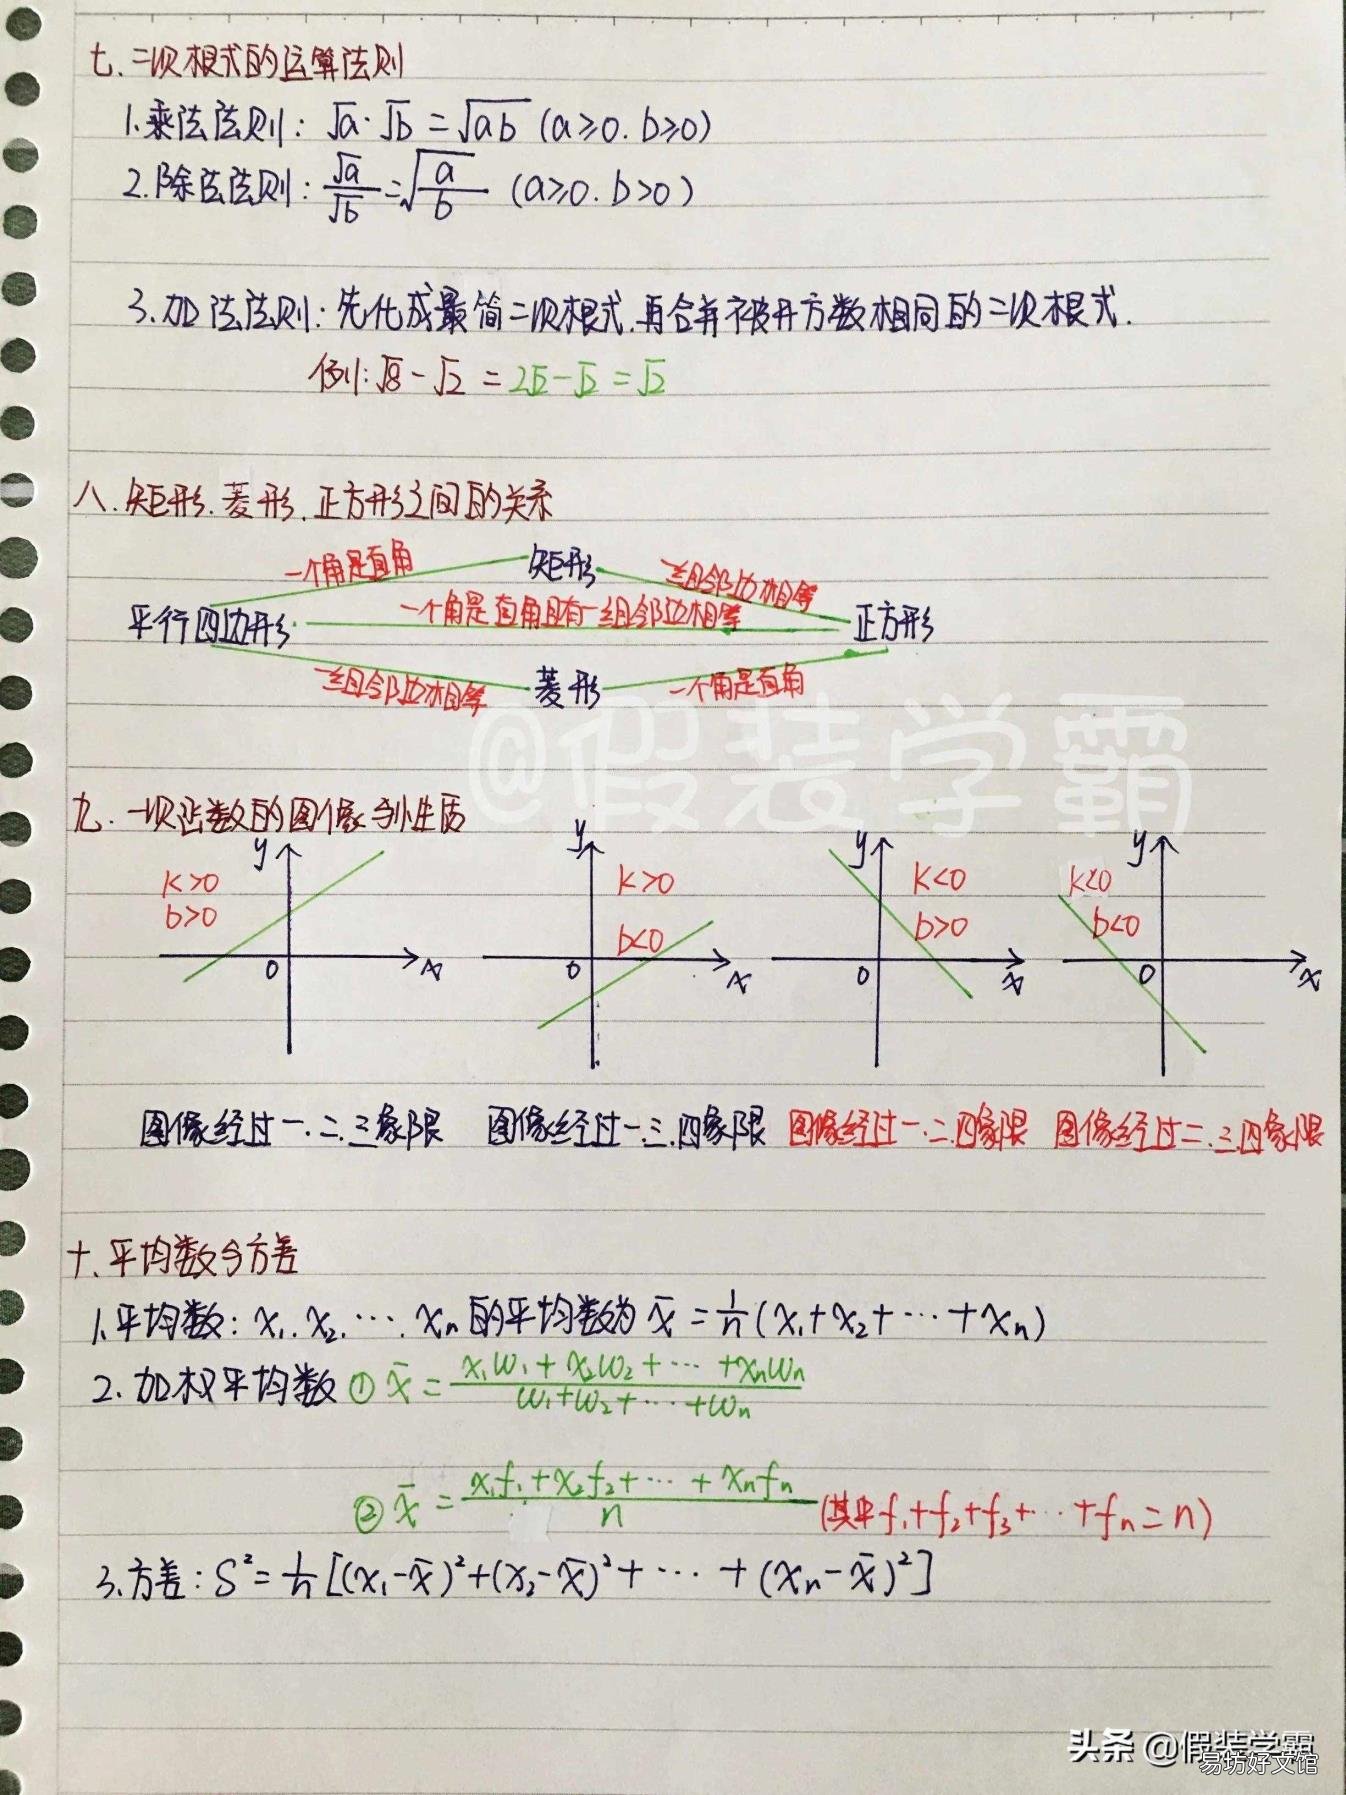 七、二次根式的运算法则
1.乘法法则：√a·√b=√ab (a≥0.b≥0)
2.除法法则：√a/√b=√(a/b) (a≥0.b>0)
3.加法法则：先化成最简二次根式.再合并被开方数相同的二次根式.
例:√8-√2=2√2-√2=√2
八.矩形.菱形.正方形之间的关系
一个角是直角 矩形 一组邻边相等
平行四边形 一个角是直角且有一组邻边相等 正方形
一组邻边相等 菱形 一个角是直角
@假装学霸
九.一次函数的图像与性质
y y y y
k>0 k>0 k<0 k<0
b>0 b<0 b>0 b<0
0 x 0 x 0 x 0 x
图像经过一.二.三象限 图像经过一.三.四象限 图像经过一.二.四象限 图像经过二.三.四象限
十.平均数与方差
1.平均数：x₁.x₂.….xn的平均数为x̄=1/n(x₁+x₂+…+xn)
2.加权平均数①x̄=(x₁w₁+x₂w₂+…+xnwn)/(w₁+w₂+…+wn)
②x̄=(x₁f₁+x₂f₂+…+xnfn)/n (其中f₁+f₂+f₃+…+fn=n)
3.方差：S²=1/n[(x₁-x̄)²+(x₂-x̄)²+…+(xn-x̄)²]
头条 @假装学霸
易坊好文馆